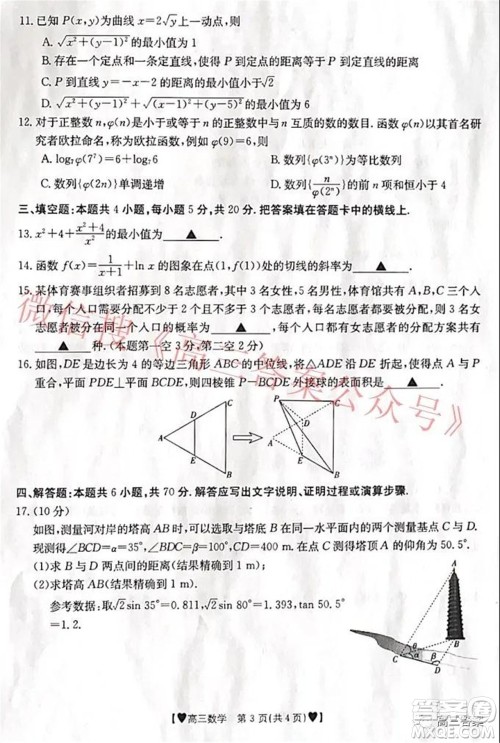 11. 已知 P(x,y)为曲线 x=2√y上一动点，则
A. √(x²+(y-1)²) 的最小值为 1
B. 存在一个定点和一条定直线，使得 P 到定点的距离等于 P 到定直线的距离
C. P 到直线 y=-x-2 的距离的最小值小于√2
D. √(x²+(y-1)²)+√((x-1)²+(y-5)²)的最小值为 6
12. 对于正整数 n，φ(n)是小于或等于 n 的正整数中与 n 互质的数的数目. 函数 φ(n)以其首名研究
者欧拉命名，称为欧拉函数，例如 φ(9)=6，则
A. log₇φ(7⁷)=6+log₇6
B. 数列{φ(3ⁿ)}为等比数列
C. 数列{φ(2n)}单调递增
D. 数列{n/φ(2ⁿ)}的前 n 项和恒小于 4
三、填空题：本题共 4 小题，每小题 5 分，共 20 分. 把答案填在答题卡中的横线上.
13. x²+4+(x²+4)/x²的最小值为 ▲ .
14. 函数 f(x)=1/(x+1)+ln x 的图象在点(1,f(1))处的切线的斜率为 ▲ .
15. 某体育赛事组织者招募到 8 名志愿者，其中 3 名女性，5 名男性，体育馆共有 A，B，C 三个入
口，每个入口需要分配不超过 3 名志愿者.
每个人都要被分配，则每个入口都有女志愿者的分配方案共有
▲ 种. (本题第一空 3 分，第二空 2 分)
16. 如图，DE 是边长为 4 的等边三角形 ABC 的中位线，将△ADE 沿 DE 折起，使得点 A 与 P
重合，平面 PDE⊥平面 BCDE，则四棱锥 P-BCDE 外接球的表面积是 ▲ .
C
D
A
E
B
P
C
D
A
E
B
四、解答题：本题共 6 小题，共 70 分. 解答应写出文字说明、证明过程或演算步骤.
17. (10 分)
如图，测量河对岸的塔高 AB 时，可以选与塔底 B 在同一水平面内的两个测量基点 C 与 D.
(1)求 B，D 两点间的距离(结果精确到 1 m).
(2)求塔高 AB(结果精确到 1 m).
参考数据：取√2sin 35°=0.811, √2sin 80°=1.393, tan 50.5°
=1.2.
A
B
C
D
α
β
θ
【♥高三数学 第 3 页(共 4 页)♥】
微信搜《高三答案公众号》
高三答案